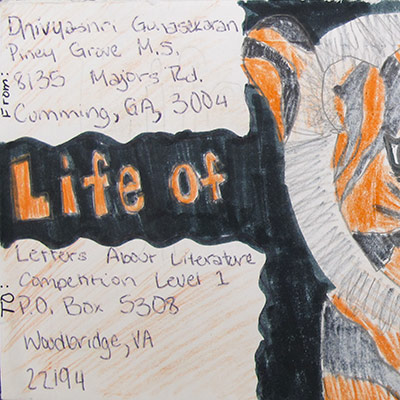 From:
Dhivyashri Gunasekaran
Piney Grove M.S.
8135 Majors Rd.
Cumming, GA, 3004
Life of
TO:
Letters About Literature
Competition Level 1
P.O. Box 5308
Woodbridge, VA
22194